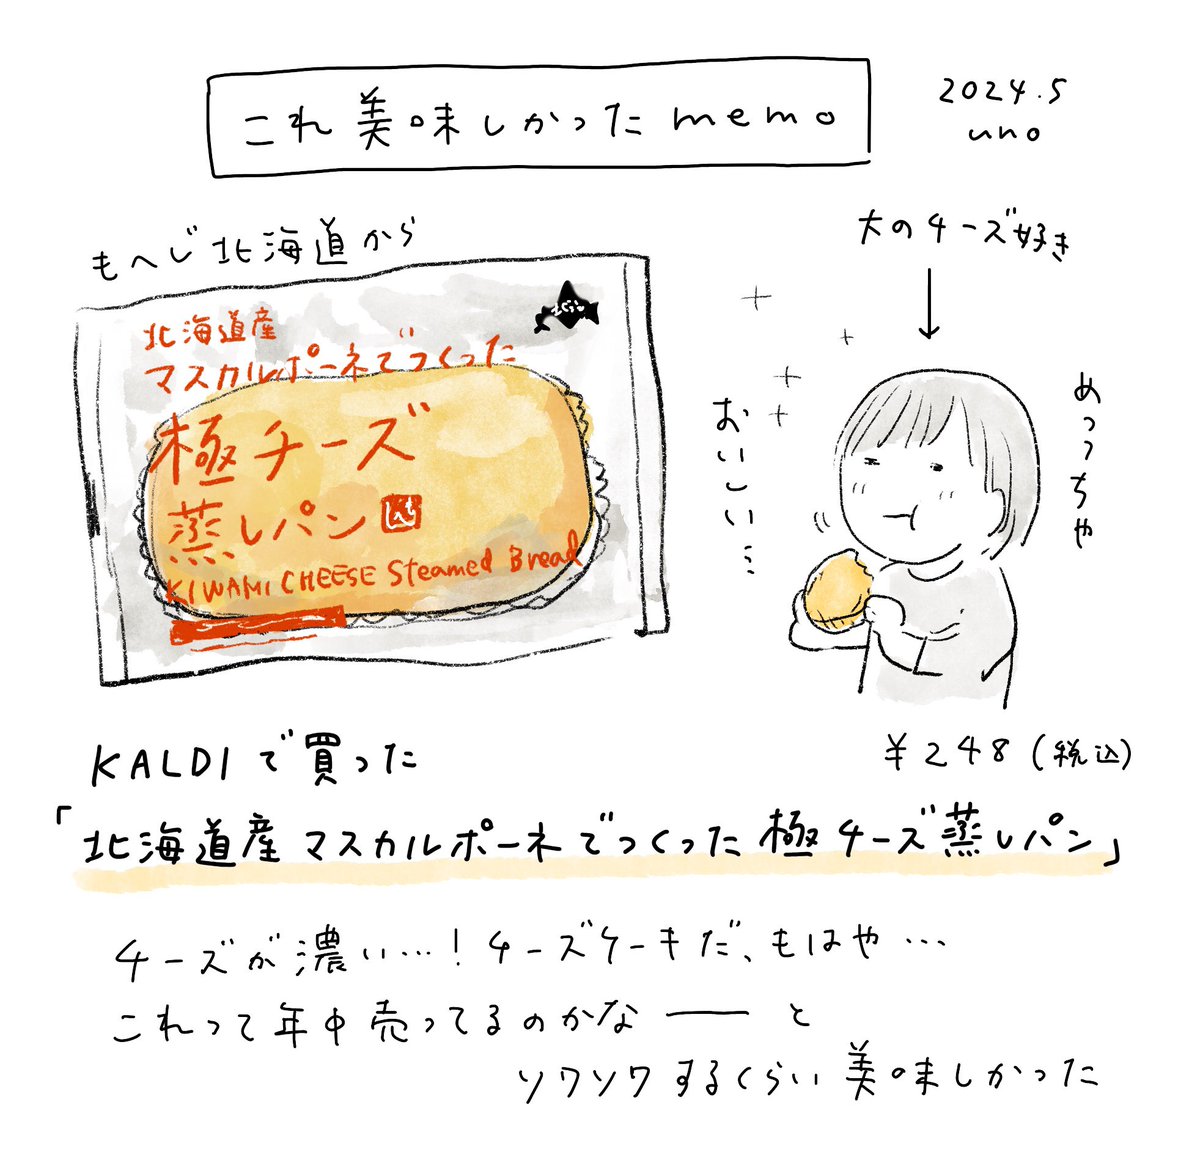 これ美味しかったmemo
2024.5
uno
もへじ北海道から
北海道産
マスカルポーネでつくった
極チーズ
蒸しパン
KIWAMI CHEESE Steamed Bread
大のチーズ好き
めっっちゃ
おいしい…
KALDIで買った
¥248(税込)
「北海道産マスカルポーネでつくった極チーズ蒸しパン」
チーズが濃い…!チーズケーキだ、もはや…
これって年中売ってるのかな――と
ソワソワするくらい美味しかった